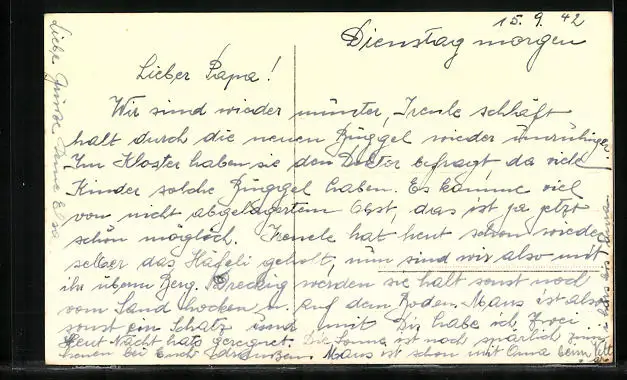 15. 9. 42
Dienstag morgen
Lieber Papa!
Wir sind wieder munter, Irenle schläft
halt durch die neuen Büggel wieder unruhiger.
Im Kloster haben sie den Dokter befragt, da viele
Kinder solche Büggel haben. Es komme viel
von nicht abgelagertem Obst, das ist ja jetzt
schön möglich. Irenele hat heut schon wieder
selber das Häfeli geholt, nun sind wir also mit
ihr überm Berg. Dreckig werden sie halt sonst noch
vom Sand hocken u. auf dem Boden. Maus ist also
sonst ein Schatz und mit Dir habe ich zwei.
Heut Nacht hats geregnet. Die Sonne ist noch spärlich zum
bei Euch draußen. Maus ist schon mit Oma beim
Liebe Grüsse Deine Elsa